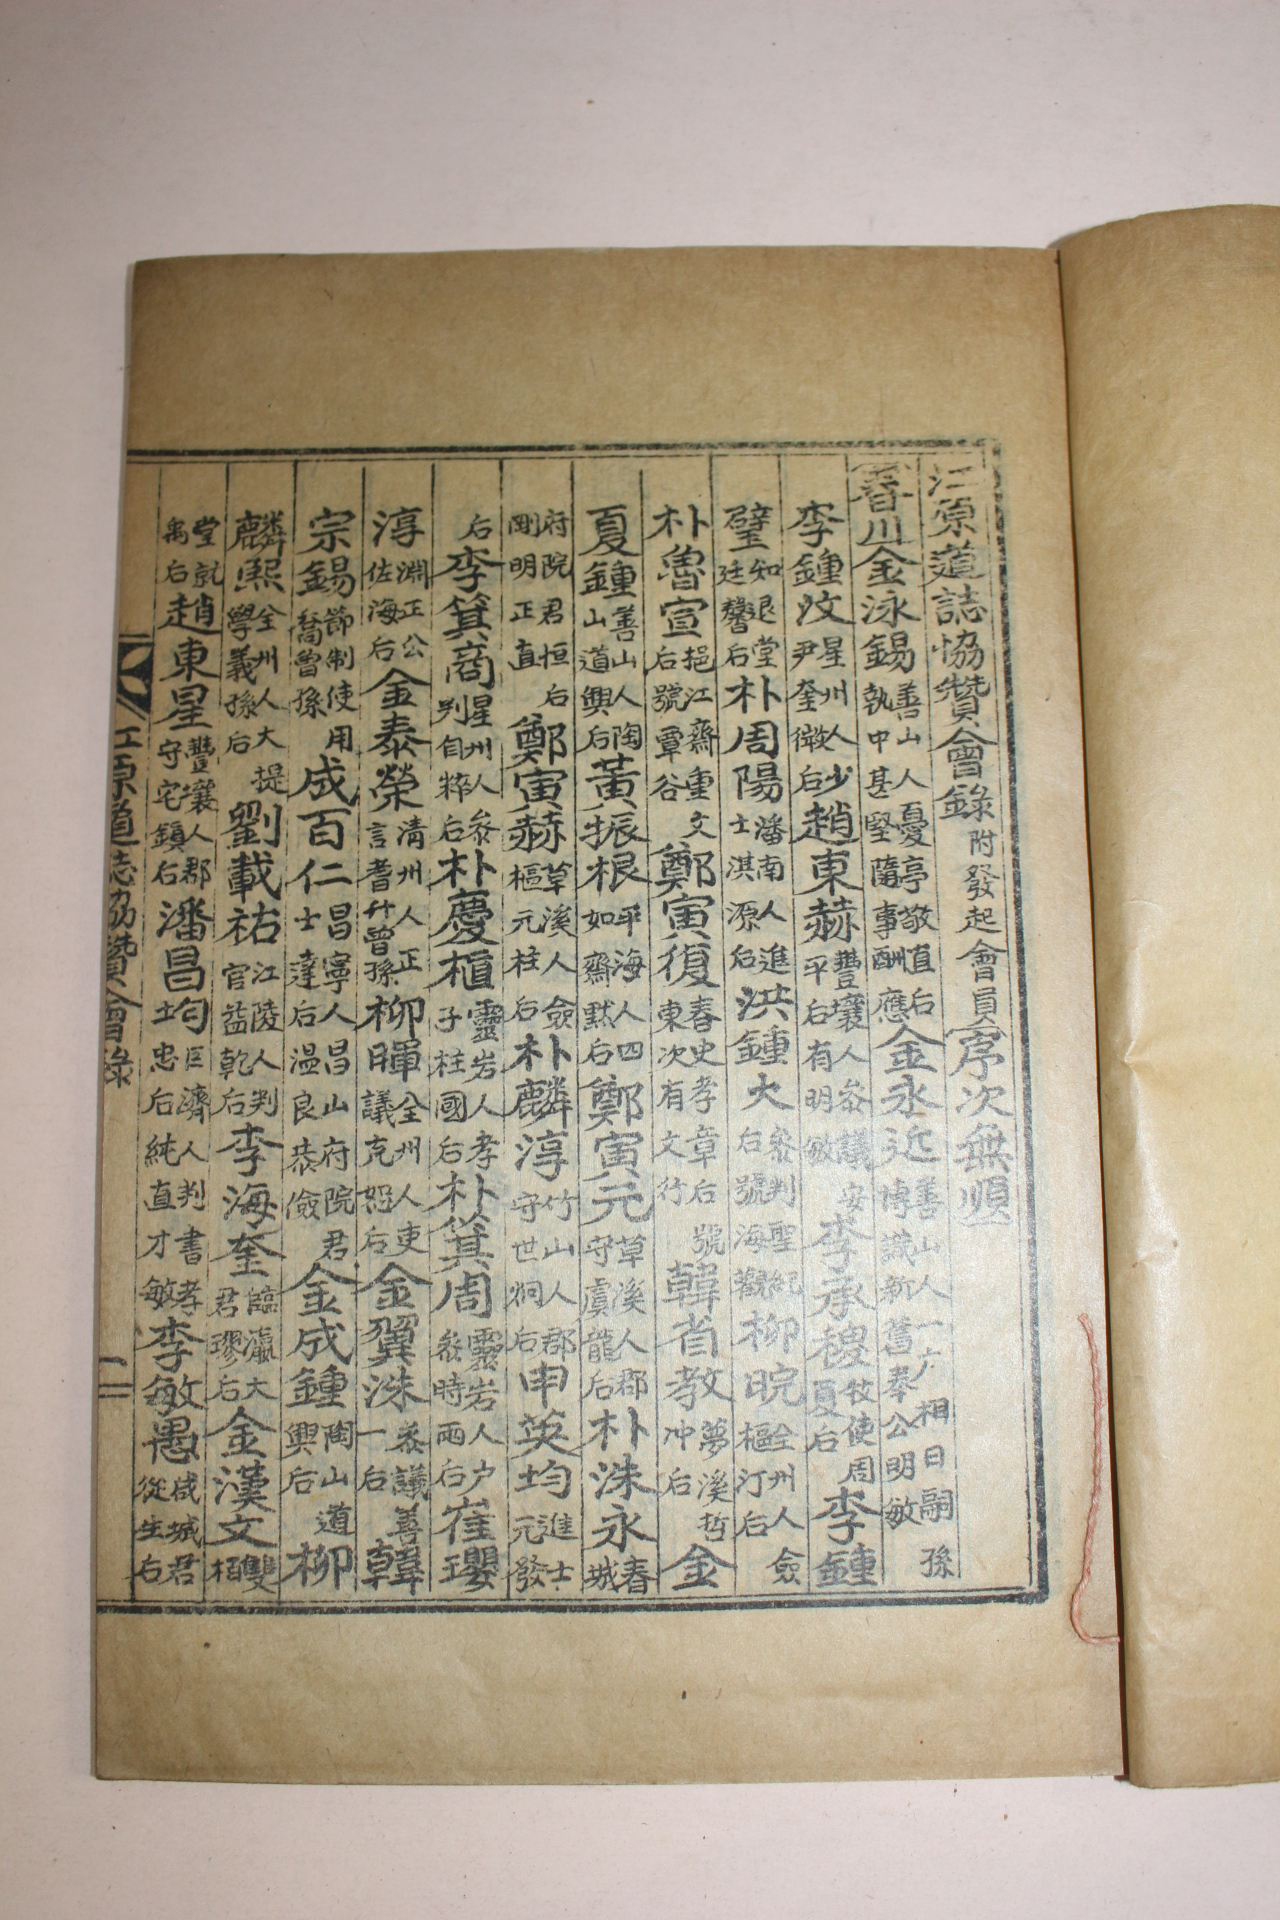 江原道誌協贊會錄 附發起會員 序次無順
春川金泳錫 善山人憂亭敬直后 執中甚堅隨事酬應 金永近 善山人一广相日嗣孫 博識新舊奉公明敏
李鍾汶 星州人少尹奎徵后 趙東赫 豐壤人參議安平后有明敏 李承稷 牧使周夏后 李鍾
璧 知退堂廷馨后 朴周陽 潘南人進士淇源后 洪鍾大 參判聖紀后號海觀 柳晥 全州人僉樞汀后
朴魯宣 挹江齋重文后號覃谷 鄭寅復 春史孝章后號東次有文行 韓省教 夢溪哲冲后 金
夏鍾 善山人陶山道興后 黃振根 平海人四如齋默后 鄭寅元 草溪人郡守虞龍后 朴洙永 春城
府院君恒后剛明正直 鄭寅赫 草溪人僉樞元柱后 朴麟淳 竹山人郡守世炯后 申英均 進士元發
后 李箕商 星州人參判自粹后 朴慶植 靈岩人孝子柱國后 朴箕周 靈岩人户參時雨后 崔瓔
淳 淵正公佐海后 金泰榮 清州人正言耆升曾孫 柳暉 全州人吏議克恕后 金翼洙 參議善一后 韓
宗錫 節制使用喬曾孫 成百仁 昌寧人昌山府院君士達后溫良恭儉 金成鍾 陶山道興后 柳
麟熙 全州人大提學義孫后 劉載祐 江陵人判官益乾后 李海奎 臨瀛大君璆后 金漢文 雙栢
堂就禹后 趙東星 豐壤人郡守宅鎮后 潘昌均 巨濟人判書孝士忠后純直才敏 李敏愚 咸城君從生后
江原道誌協贊會錄 一